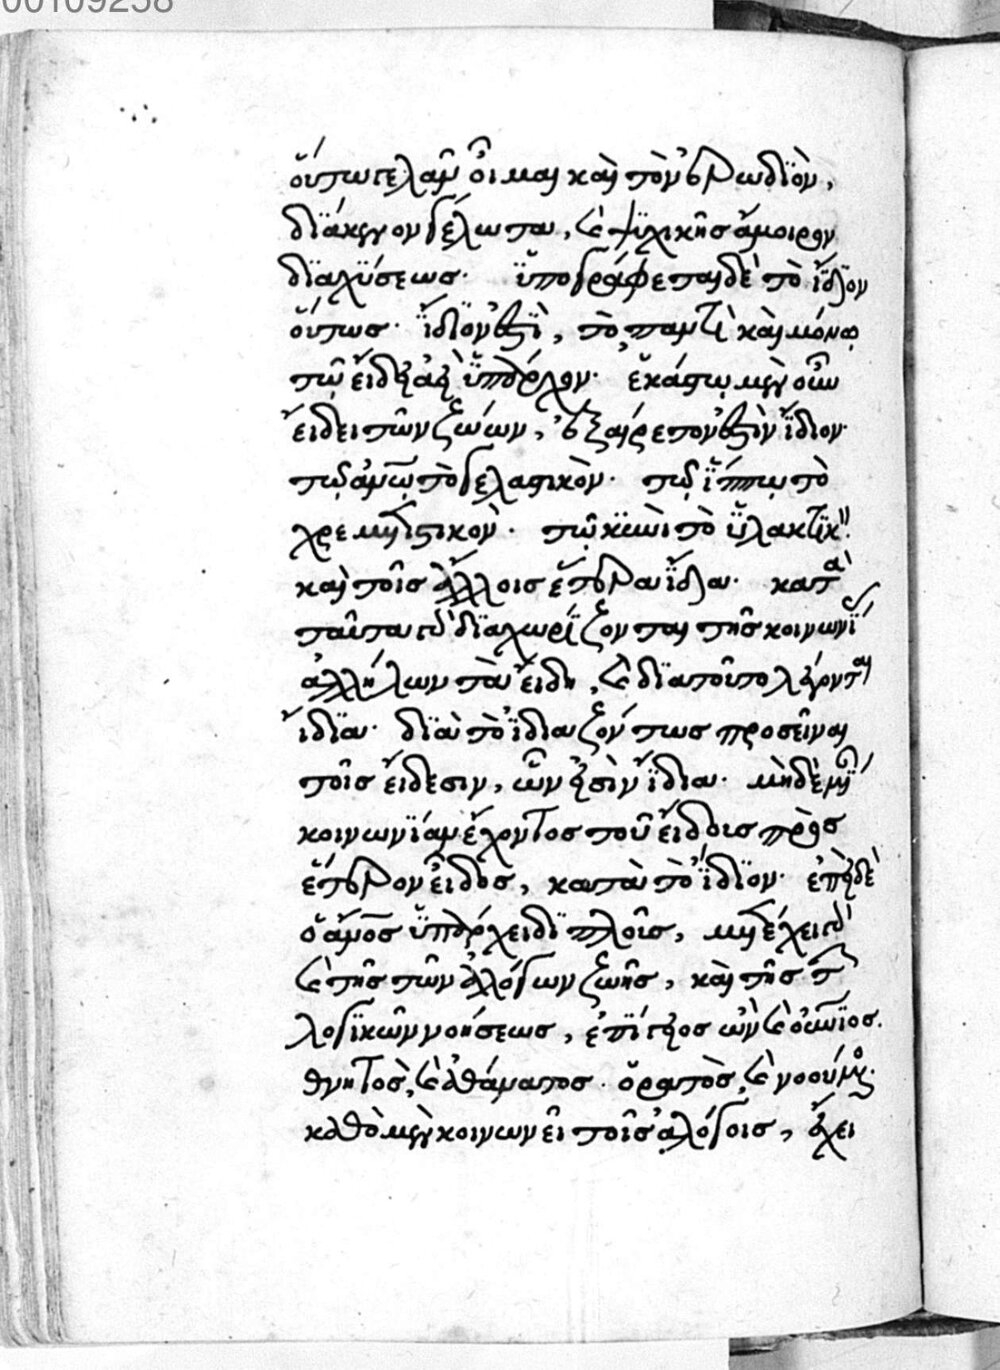 00109258
οὕτω γελᾶν οἶμαι καὶ τὸν ἐρωδϊὸν,
δϊάκενον γέλωτα, καὶ ψϋχικῆς ἄμοιρον
δϊαχΰσεως. ὑπογράφεται δὲ τὸ ἴδιον
οὕτως. ἴδϊον ἐστὶ, τὸ παντὶ καὶ μόνῳ
τῷ εἴδει ἀεὶ ὑπάρχον. ἑκάστῳ μὲν οὖν
εἴδει τῶν ζώων, ἐξαίρετον ἐστὶν ἴδιον.
τῷ δ ἀνῶ τὸ γελαστικὸν. τῷ δ ἵππῳ τὸ
χρεμετιστικὸν. τῷ κϋνὶ τὸ ὑλακτικ
καὶ τοῖς ἄλλοις ἕτερα ἴδια. κατὰ
ταῦτα γὰρ δϊαχωρίζονται τῆς κοινωνΐ
ἀλλήλων τὰ εἴδη, καὶ δϊατοῦτο λέγονται
ἴδϊα. δϊὰ τὸ ἰδιαζόντως προσεῖναι
τοῖς εἴδεσιν, ὧν εἰσὶν ἴδια. μηδεμΐ
κοινωνΐαν ἔχοντος τοῦ εἴδους πρὸς
ἕτερον εἶδος, κατὰ τὸ ἴδϊον. ἐπεὶ δὲ
ὁ ἄνος ὑπάρχει διπλοῦς, μετέχει γὰρ
καὶ τῆς τῶν ἀλόγων ζωῆς, καὶ τῆς τ
λογϊκῶν νοήσεως, ἐπΐγειος ὢν καὶ οὐνϊος.
θνητὸς, καὶ ἀθάνατος. ὁρατὸς, καὶ νοούμος.
καθὸ μὲν κοινωνεῖ τοῖς ἀλόγοις, ἔχει